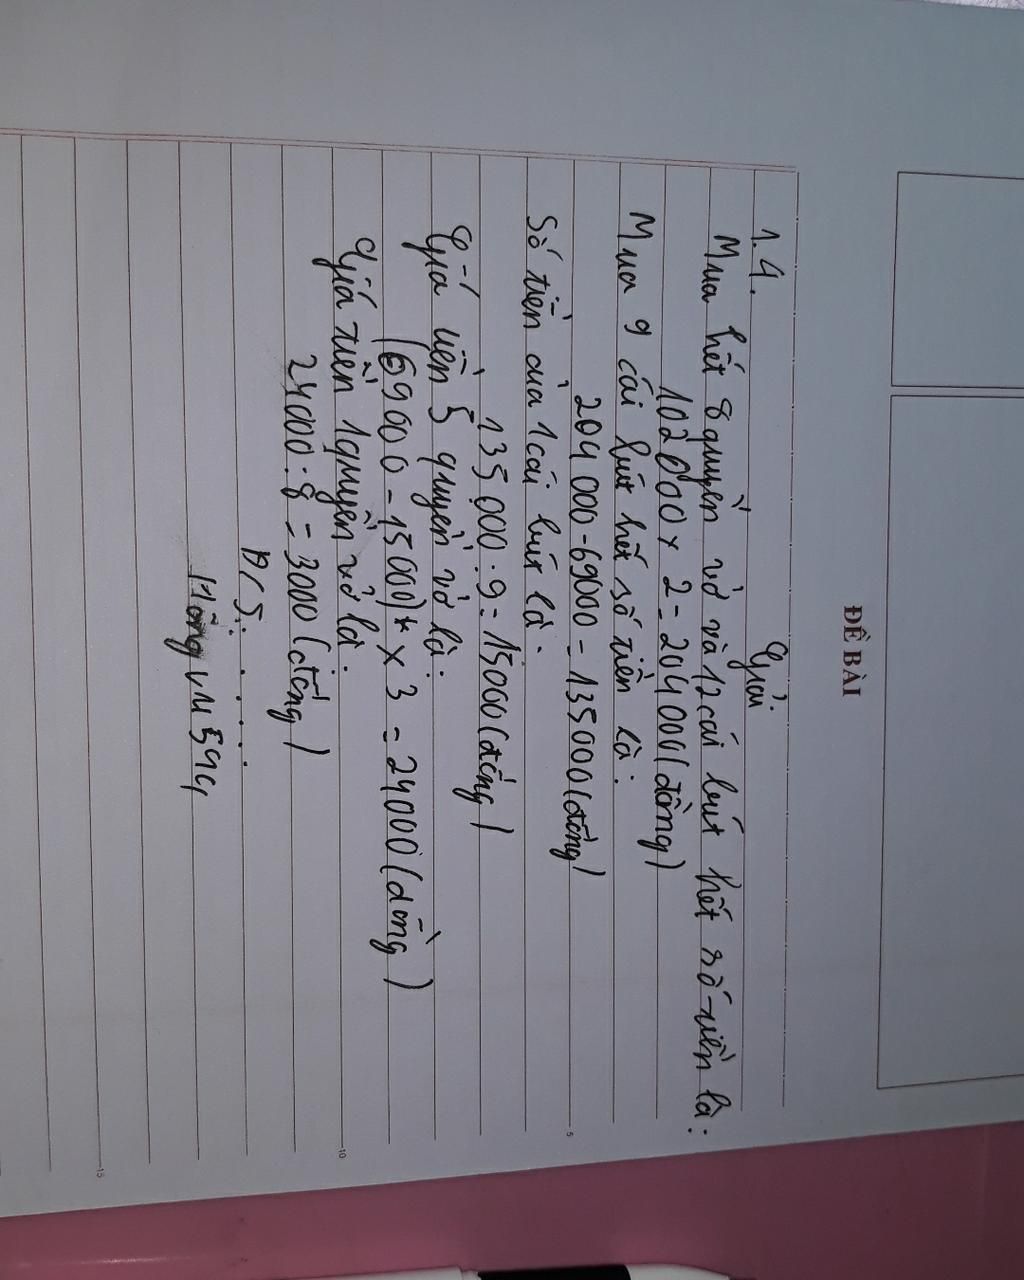 ĐỀ BÀI
Giải
1.4.
Mua hết 8 quyển vở và 12 cái bút hết số tiền là:
102000 x 2 = 204000 (đồng)
Mua 9 cái bút hết số tiền là:
204 000 - 69000 = 135000 (đồng)
Số tiền của 1 cái bút là.
135 000 : 9 = 15000 (đồng)
Giá tiền 5 quyển vở là:
(6900 0 - 1500) x 3 = 24000 (đồng)
Giá tiền 1 quyển vở là:
24000 : 8 = 3000 (đồng)
Đ/S: . . . . .
5
10
15